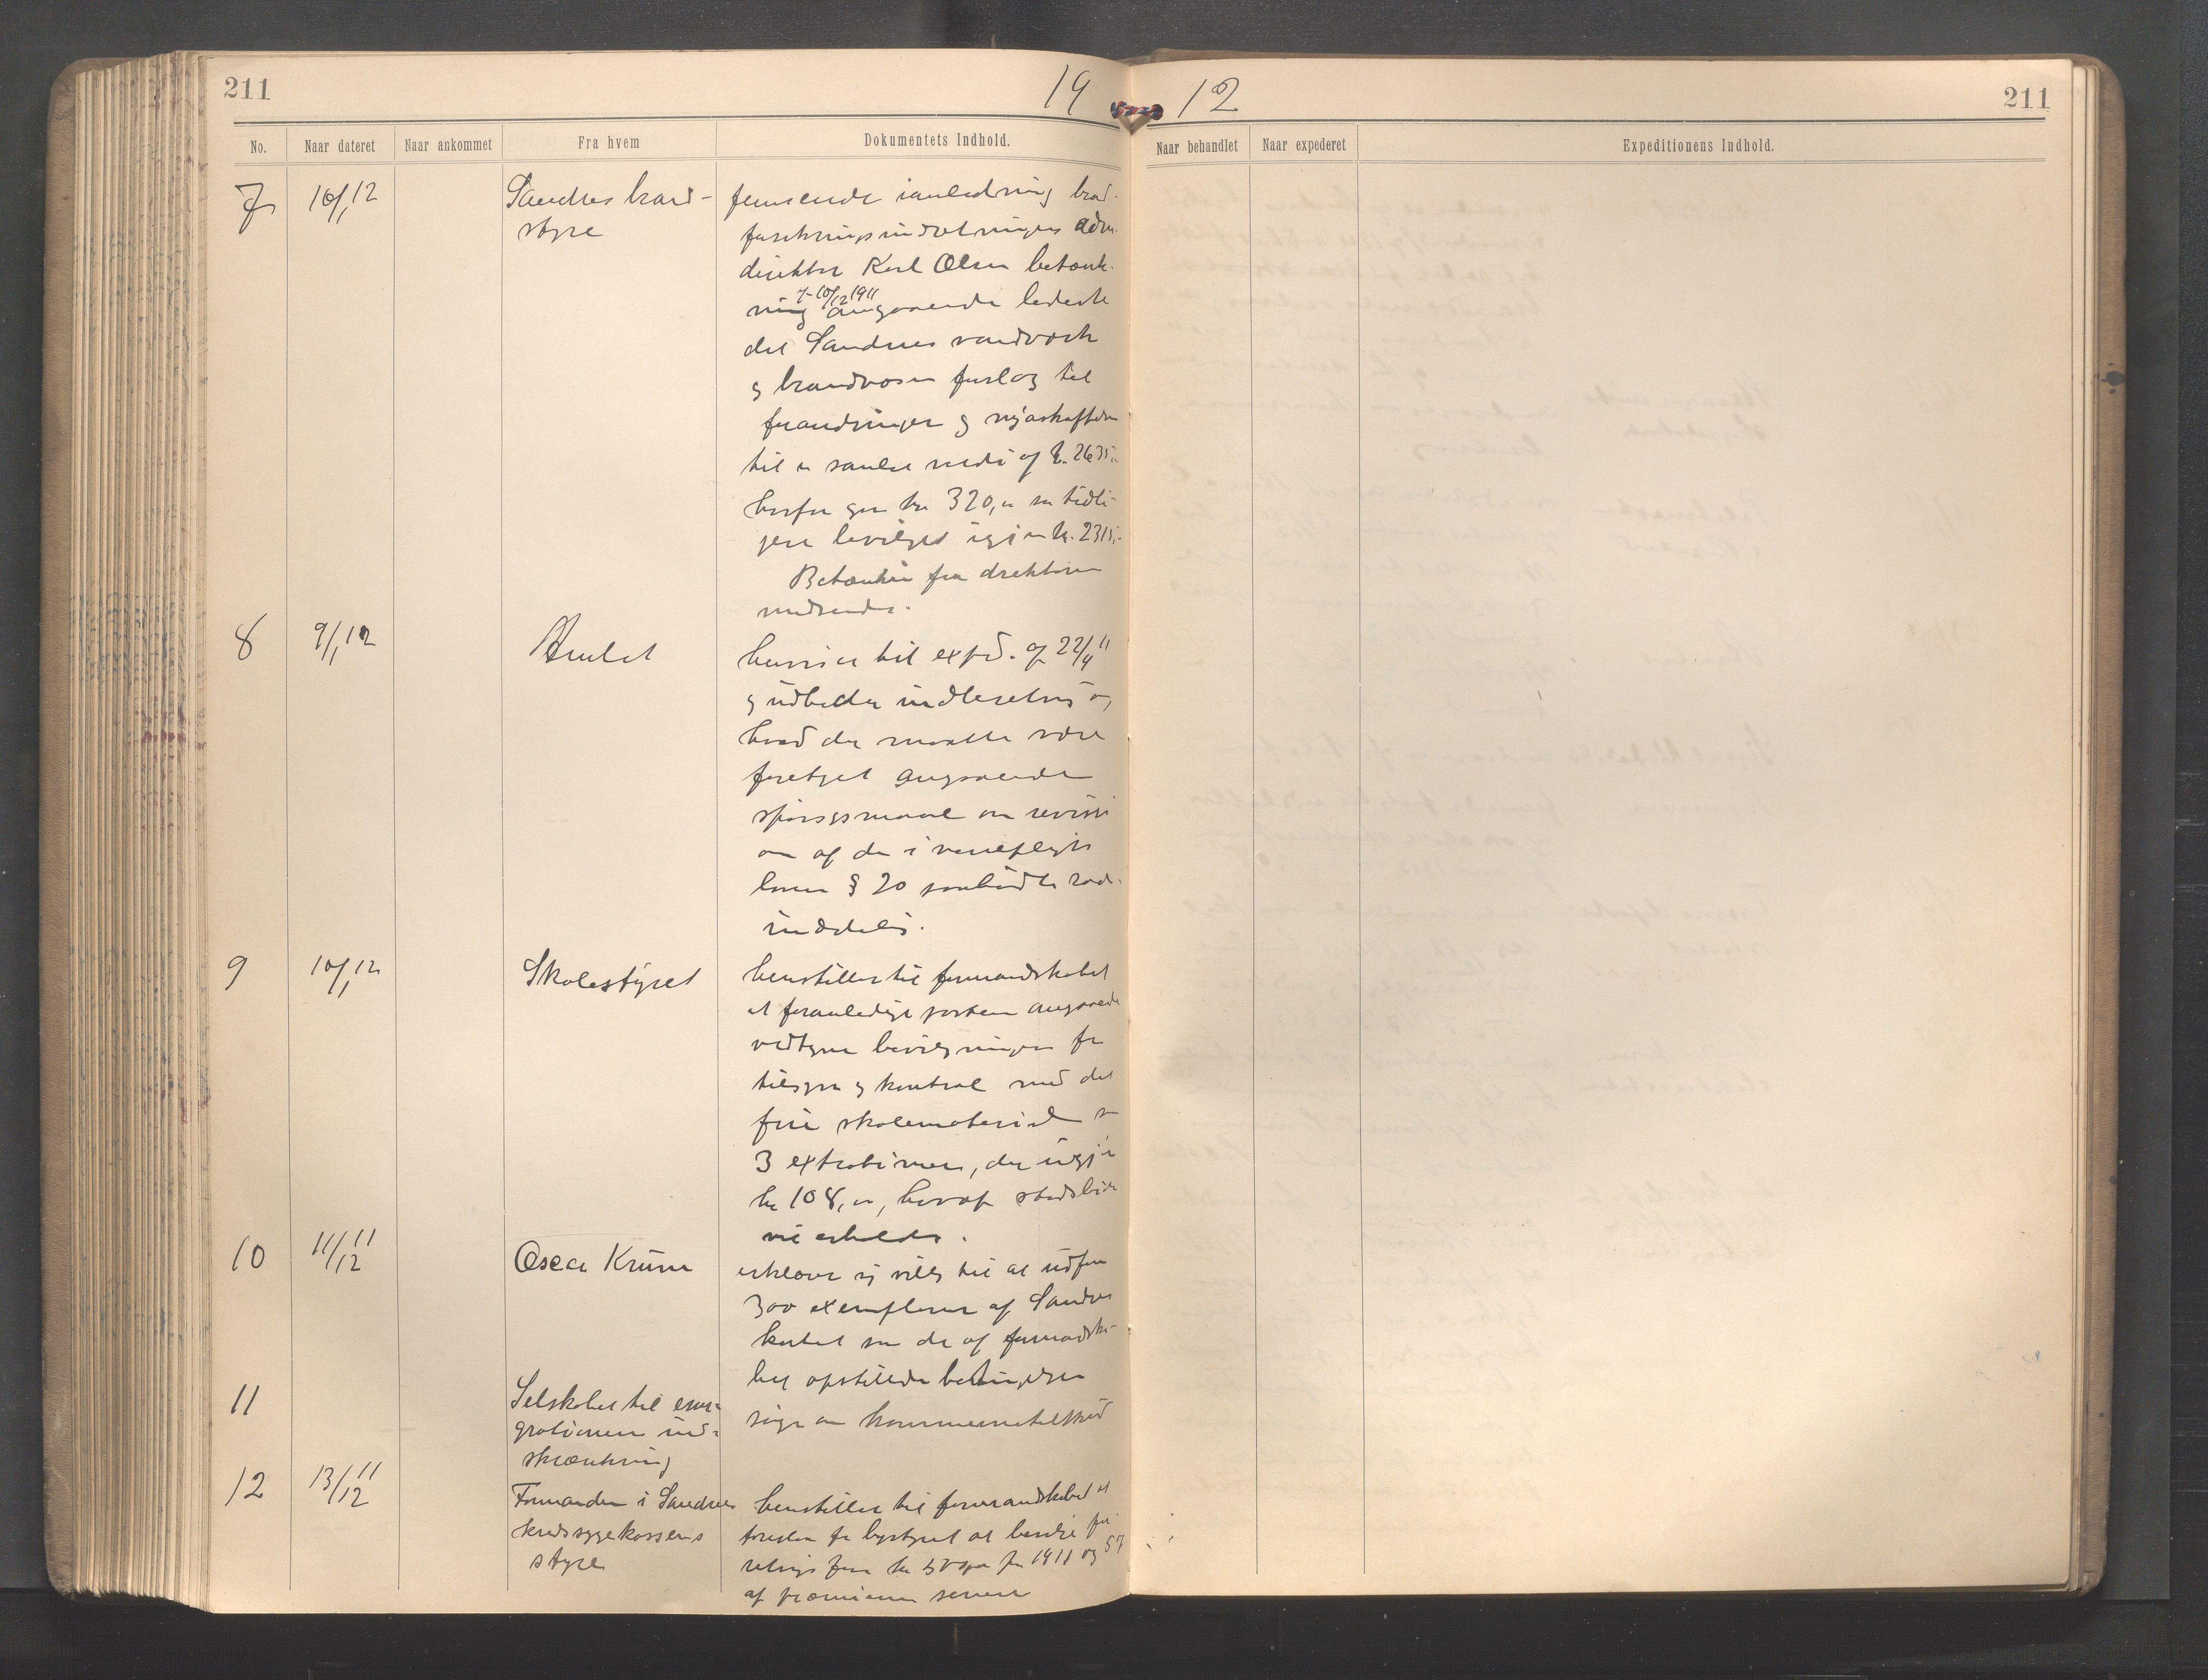 211
19
12
211
No.
Naar dateret
Naar ankommet
Fra hvem
Dokumentets Indhold.
Naar behandlet
Naar expederet
Expeditionens Indhold.
7
10/1 12
Sandnes brand-
styre
fremsender i anledning brand-
forsikringsindretningens adm.
direktør Karl Olsen betænk-
ning
af 10/12 1911
angaaende
det Sandnes vandværk
og brandvæsen forslag til
forandringer og nyanskaffelser
til en samlet værdi af kr. 2635,-
herfra gaar kr 320,00 som tidli-
gere bevilget kr. 2315,-
Betænkn fra direktøren
medsendes.
8
9/1 12
Amtet
henviser til exped. af 22/4 11
og udbeder indberetning om
hvad der maatte være
foretaget angaaende
spørgsmaal om revisi
on af de i værnepligts
loven § 20 rode-
inddeling.
9
10/1 12
Skolestyret
henstiller til formandskabet
at foranledige posten angaaende
bevilgningen for
tilsyn og kontrol med det
frie skolemateriel som
3 extratimer, der udgjør
kr 108,00, hvoraf statsbidr
vil erholdes.
10
11/12 11
Oscar Krum
erklærer sig villig til at udføre
300 exemplarer af Sandnes
kartet som de af formandska-
bet opstillede betingelser
11
Selskabet til emi-
grationens ind-
skrænkning
søger om kommunetilskud
12
13/12 11
Formanden i Sandnes
kredssygekasses
styre
henstiller til formandskabet at
foreslaa for bystyret at bevilge for-
kr 50 for 1911 og 5%
af præmierne senere